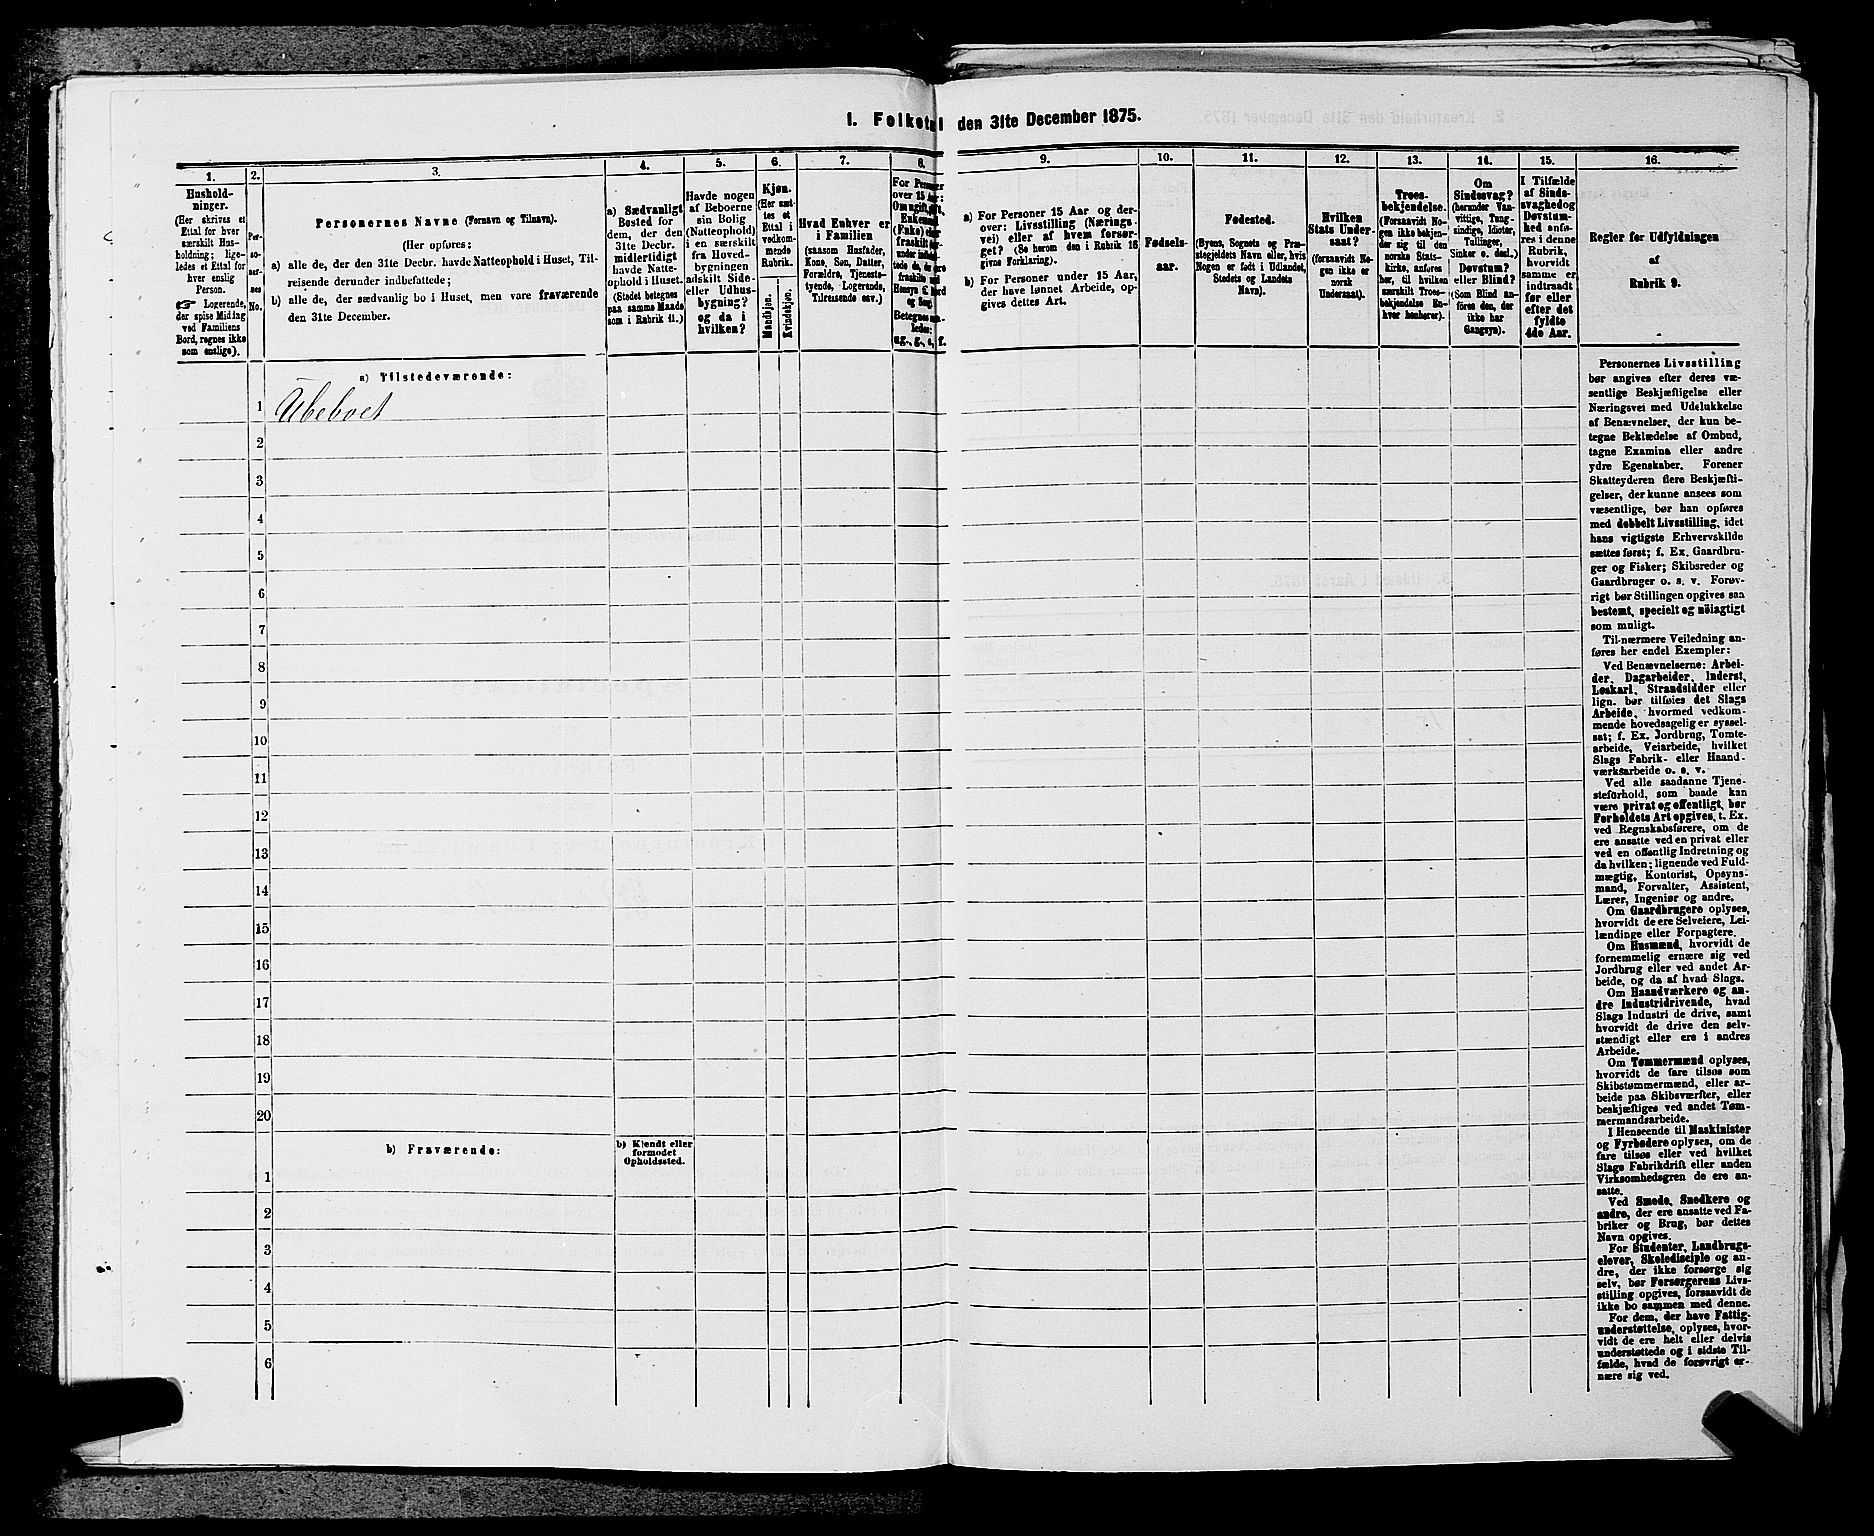 I. Folketal den 31te December 1875.
1.
2.
3.
4.
5.
6.
7.
8.
9.
10.
11.
12.
13.
14.
15.
16.
Hushold-
ninger.
(Her skrives et
Ettal for hver
særskilt Hus-
holdning; lige-
ledes et Ettal for
hver enslig
Person.
☞ Logerende,
der spise Middag
ved Familiens
Bord, regnes ikke
som enslige).
Per-
so-
ner-
nes
No.
Personernes Navne (Fornavn og Tilnavn).
(Her opføres:
a) alle de, der den 31te Decbr. havde Natteophold i Huset, Til-
reisende derunder indbefattede;
b) alle de, der sædvanlig bo i Huset, men vare fraværende
den 31te December.
a) Sædvanligt
Bosted for
dem, der den
31te Decbr.
midlertidigt
havde Natte-
ophold i Huset.
(Stedet betegnes
paa samme Maade
som i Rubrik 11.)
Havde nogen
af Beboerne
sin Bolig
(Natteophold)
i en særskilt
fra Hoved-
bygningen
adskilt Side-
eller Udhus-
bygning?
og da i
hvilken?
Kjøn.
(Her sæt-
tes et
Ettal i
vedkom-
mende
Rubrik.
Mandkjøn.
Kvindekjøn.
Hvad Enhver er
i Familien
(saasom Husfader,
Kone, Søn, Datter,
Forældre, Tjeneste-
tyende, Logerende,
Tilreisende osv.)
For Personer
over 15 Aar:
Om ugift, gift,
Enkemand
(Enke) eller
fraskilt
Betegnes saa-
ledes:
ug., g., e., f.
a) For Personer 15 Aar og der-
over: Livsstilling (Nærings-
vei) eller af hvem forsør-
get? (Se herom den i Rubrik 16
givne Forklaring).
b) For Personer under 15 Aar,
der have lønnet Arbeide, op-
gives dettes Art.
Fødsels-
aar.
Fødested.
(Byens, Sognets og Præ-
stegjeldets Navn eller, hvis
Nogen er født i Udlandet,
Stedets og Landets
Navn).
Hvilken
Stats Under-
saat?
(forsaavidt No-
gen ikke er
norsk
Undersaat).
Troes-
bekjendelse.
(Forsaavidt No-
gen ikke bekjen-
der sig til den
norske Stats-
kirke, anføres
her, til hvilken
særskilt Troes-
bekjendelse En-
hver henhører).
Om
Sindssvag?
(herunder Van-
vittige, Tung-
sindige, Idioter,
Tullinger,
Sinker o. desl.)
Døvstum?
eller Blind?
(Som Blind an-
føres den, der
ikke har
Gangsyn).
I Tilfælde
af Sinds-
svaghed og
Døvstum-
hed anfø-
res i denne
Rubrik,
hvorvidt
samme er
indtraadt
før eller
efter det
fyldte
4de Aar.
Regler for Udfyldningen
af
Rubrik 9.
a) Tilstedeværende:
1 Ubeboet
2
3
4
5
6
7
8
9
10
11
12
13
14
15
16
17
18
19
20
b) Fraværende:
b) Kjendt eller
formodet
Opholdssted.
1
2
3
4
5
6
Personernes Livsstilling
bør angives efter deres væ-
sentlige Beskjæftigelse eller
Næringsvei med Udelukkelse
af Benævnelser, der kun be-
tegne Beklædelse af Ombud,
tagne Examina eller andre
ydre Egenskaber. Forener
Skatteyderen flere Beskjæfti-
gelser, der kunne ansees som
væsentlige, bør han opføres
med dobbelt Livsstilling, idet
hans vigtigste Erhvervskilde
sættes først; f. Ex. Gaardbru-
ger og Fisker; Skibsreder og
Gaardbruger o. s. v. Forøv-
rigt bør Stillingen opgives saa
bestemt, specielt og nøiagtigt
som muligt.
Til nærmere Veiledning an-
føres her endel Exempler:
Ved Benævnelserne: Arbei-
der, Dagarbeider, Inderst,
Løskarl, Strandsidder eller
lign. bør tilføies det Slags
Arbeide, hvormed vedkom-
mende hovedsagelig er syssel-
sat; f. Ex. Jordbrug, Tomte-
arbeide, Veiarbeide, hvilket
Slags Fabrik- eller Haand-
værksarbeide o. s. v.
Ved alle saadanne Tjene-
steforhold, som baade kan
være privat og offentligt, bør
Forholdets Art opgives, t. Ex.
ved Regnskabsførere, om de
ere ansatte ved en privat eller
ved en offentlig Indretning og
da hvilken; lignende ved Fuld-
mægtig, Kontorist, Opsyns-
mand, Forvalter, Assistent,
Lærer, Ingeniør og andre.
Om Gaardbrugere oplyses,
hvorvidt de ere Selveiere, Lei-
lændinge eller Forpagtere.
Om Husmænd, hvorvidt de
fornemmelig ernære sig ved
Jordbrug eller ved andet Ar-
beide, og da af hvad Slags.
Om Haandværkere og an-
dre Industridrivende, hvad
Slags Industri de drive, samt
hvorvidt de drive den selv-
stændigt eller ere i andres
Arbeide.
Om Tømmermænd oplyses,
hvorvidt de fare tilsøs som
Skibstømmermænd, eller ar-
beide paa Skibsværfter, eller
beskjæftiges ved andet Tøm-
mermandsarbeide.
I Henseende til Maskinister
og Fyrbødere oplyses, om de
fare tilsøs eller ved hvilket
Slags Fabrikdrift eller anden
Virksomhedsgren de ere an-
satte.
Ved Smede, Snedkere og
andre, der ere ansatte ved Fa-
briker og Brug, bør dettes
Navn opgives.
For Studenter, Landbrugs-
elever, Skoledisciple og an-
dre, der ikke forsørge sig
selv, bør Forsørgerens Livs-
stilling opgives, forsaavidt de
ikke bo sammen med denne.
For dem, der have Fattig-
understøttelse, oplyses, hvor-
vidt de ere helt eller delvis
understøttede og i sidste Til-
fælde, hvad de forøvrigt er-
nære sig ved.